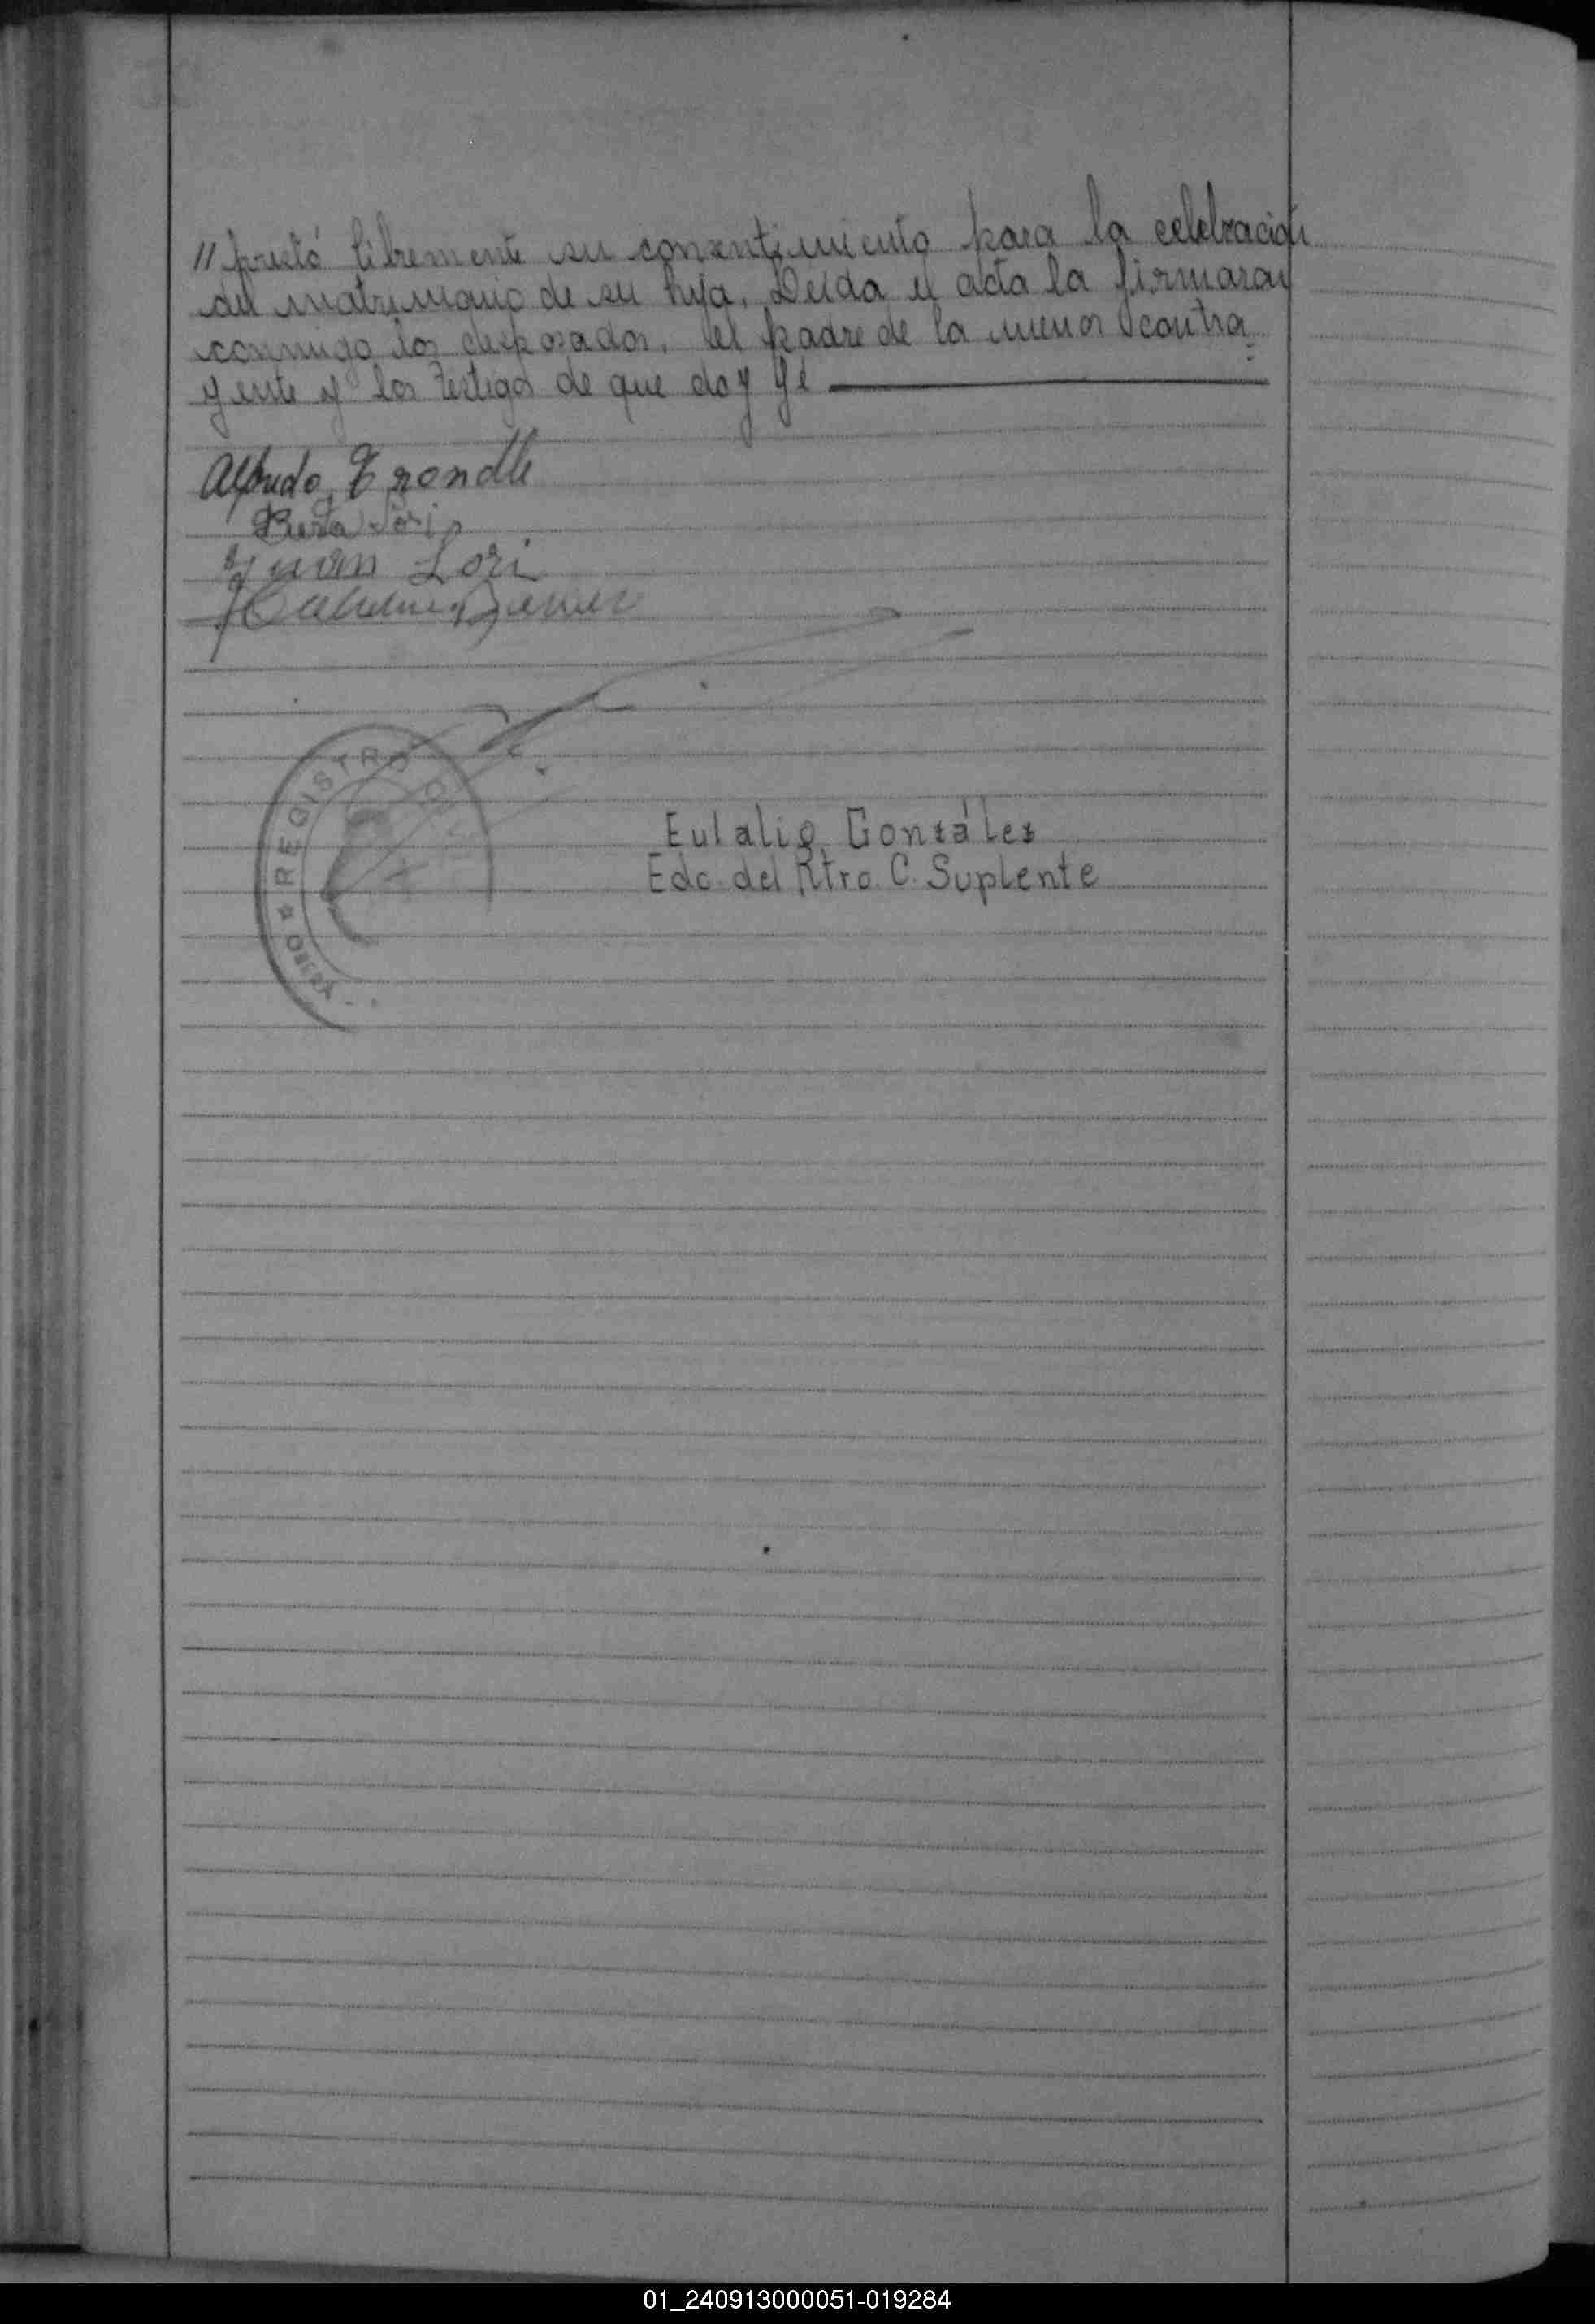 // prestó libremente su consentimiento para la celebración
del matrimonio de su hija. Leída el acta la firmaran
conmigo los desposados, el padre de la menor contra
yente y los testigos de que doy fé
Alfredo Trondle
Berta Lori
Juan Lori
REGISTRO C
OBERA
Eulalio Gonzáles
Edo. del Rtro. C. Suplente
01_240913000051-019284